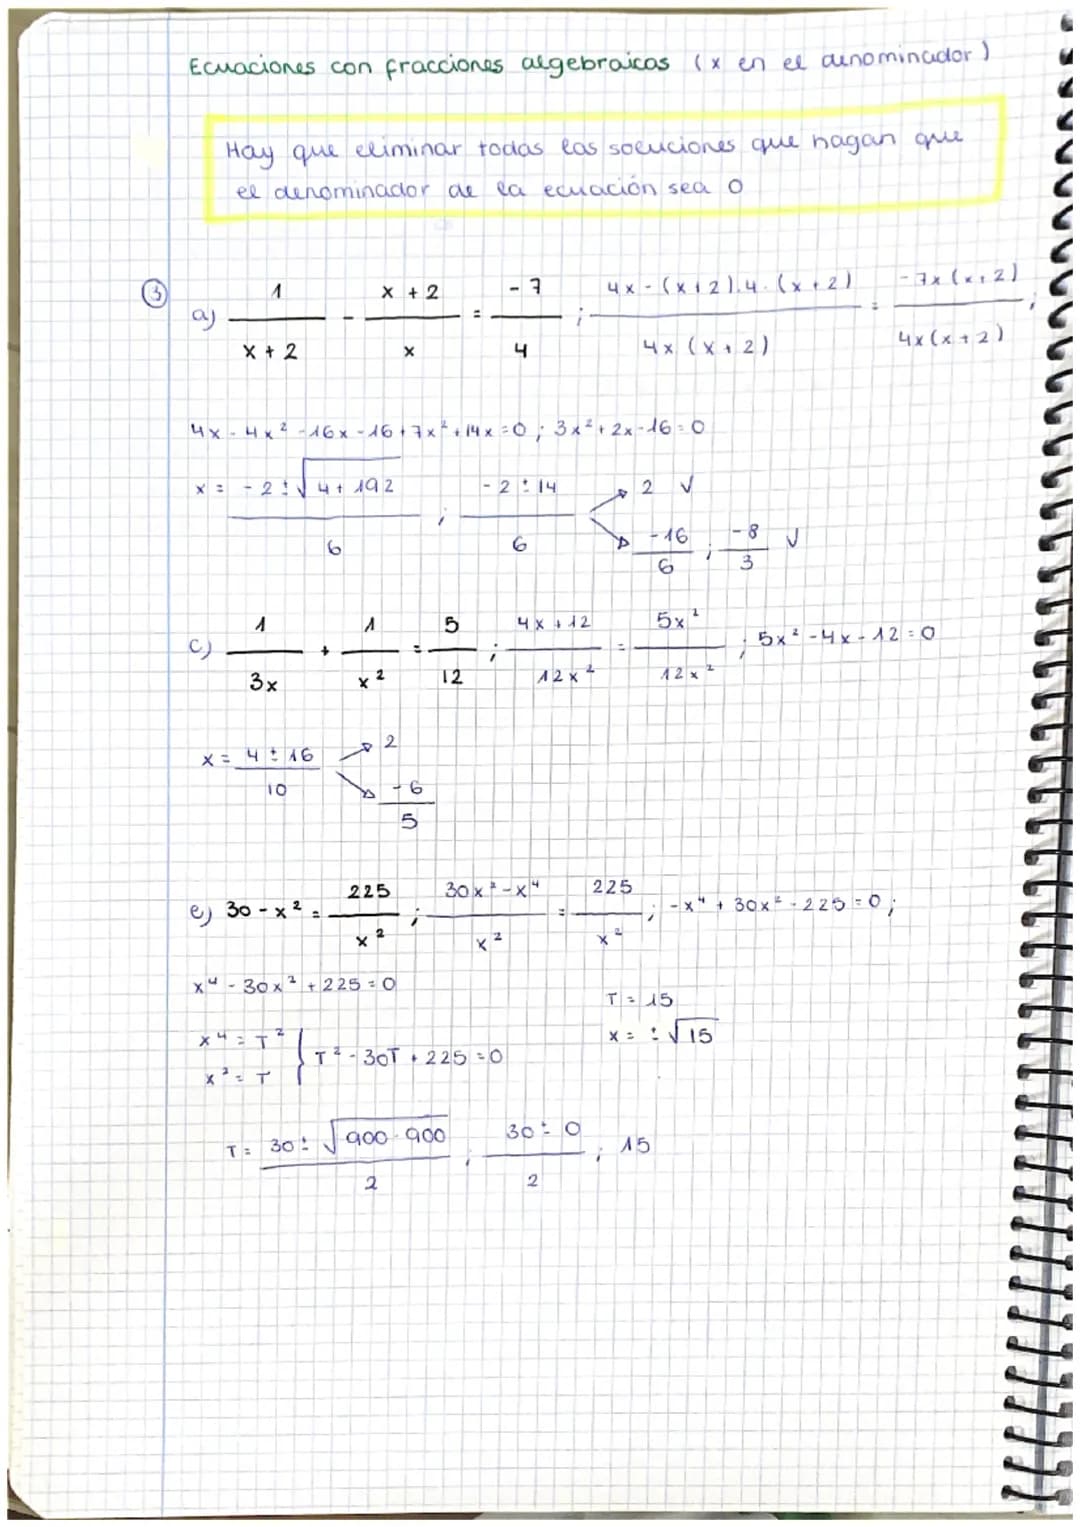 Ecuaciones con fracciones algebraicas (x en el denominador)
Hay que eliminar todas las soluciones que hagan que
el denominador de la ecuación sea 0
③
a) 1/(x + 2) - (x + 2)/x = -7/4 ; (4x - (x+2).4.(x+2))/(4x (x+2)) = (-7x(x+2))/(4x(x+2)) ;
4x - 4x² - 16x - 16 + 7x² + 14x = 0 ; 3x² + 2x - 16 = 0
x = (-2 ± √(4 + 192))/6 ; (-2 ± 14)/6 → 2 ✓
→ -16/6 ; -8/3 ✓
c) 1/(3x) + 1/x² = 5/12 ; (4x + 12)/(12x²) = 5x²/(12x²) ; 5x² - 4x - 12 = 0
x = (4 ± 16)/10 → 2
→ -6/5
e) 30 - x² = 225/x² ; (30x² - x⁴)/x² = 225/x² ; -x⁴ + 30x² - 225 = 0 ;
x⁴ - 30x² + 225 = 0
x⁴ = T²
x² = T } T² - 30T + 225 = 0
T = 15
x = ± √15
T = (30 ± √(900 - 900))/2 ; (30 ± 0)/2 ; 15